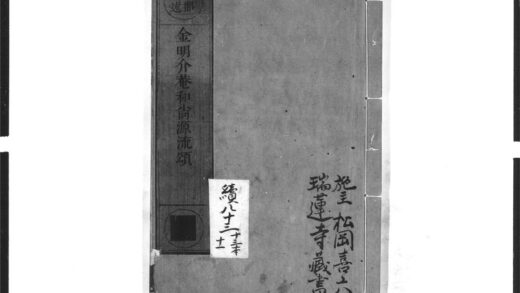 金明介菴和尚源流頌
續八十三
施主 松岡喜
瑞蓮寺藏書